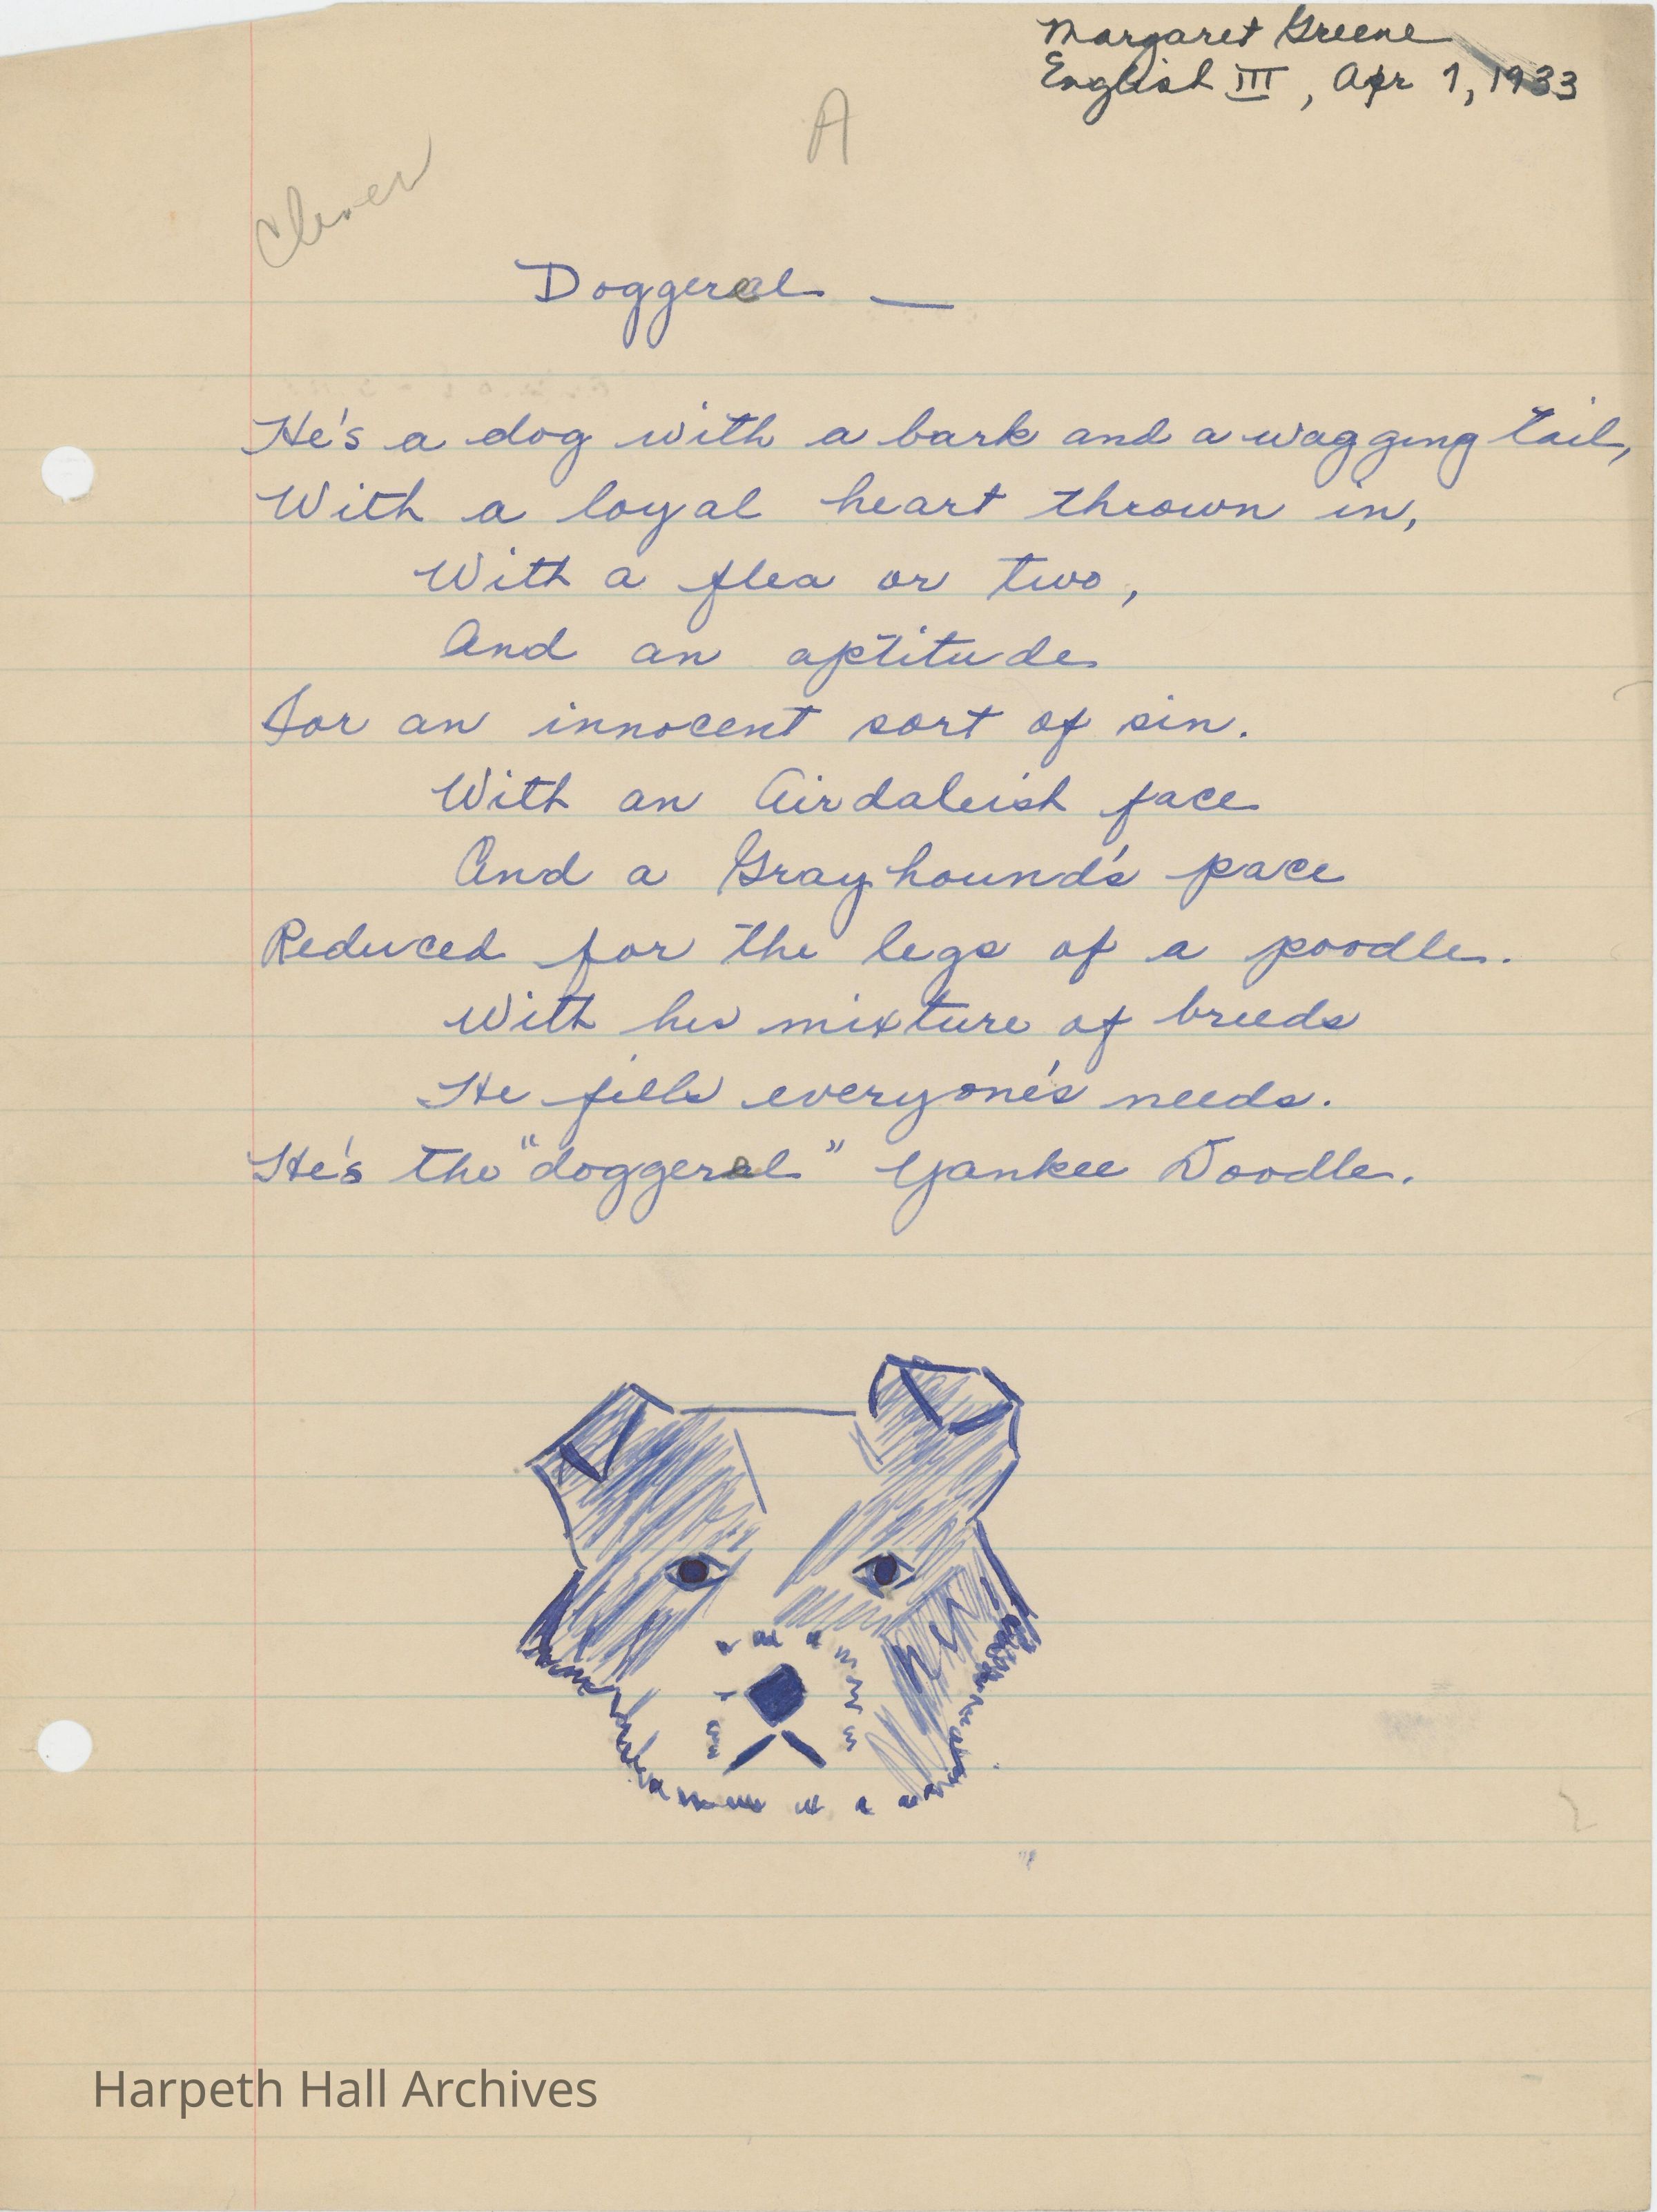 Margaret Greene
English III, Apr 7, 1933
A
Clever
Doggerel —
He's a dog with a bark and a wagging tail,
With a loyal heart thrown in,
With a flea or two,
And an aptitude
For an innocent sort of sin.
With an Airdaleish face
And a Grayhound's pace
Reduced for the legs of a poodle.
With his mixture of breeds
He fills everyone's needs.
He's the "doggerel" Yankee Doodle.
Harpeth Hall Archives